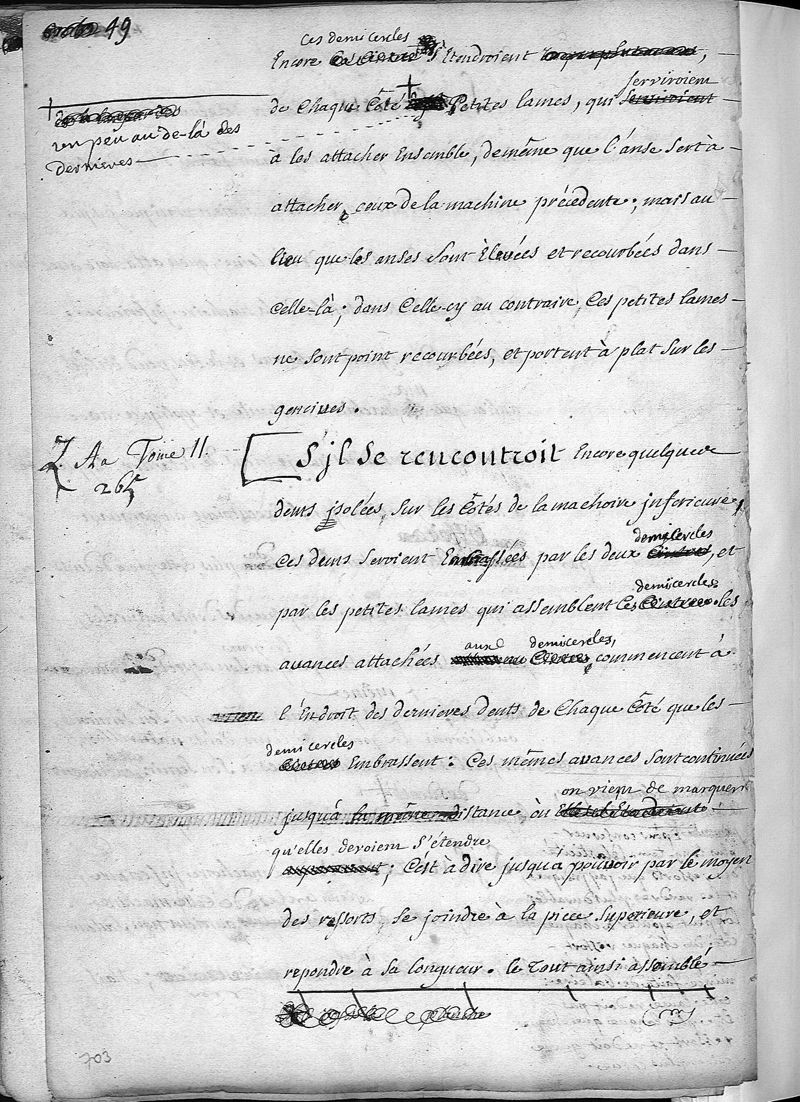 49
ces demicercles
Encore s'Etendroient
serviroient
de Chaque Côté + Petites lames, qui serviroient
un peu au de-là des
dernieres
à les attacher Ensemble, de même que l'anse sert à
attacher ceux de la machine précédente; mais au
lieu que les anses sont Elevées et recourbées dans
Celle-là; dans Celle-cy au contraire, Ces petites lames
ne sont point recourbées, et portent à plat sur les
gencives.
Aa Tome II.
265
S'jl se rencontroit Encore quelques
dents jsolées, sur les Côtés de la machoire jnferieure,
demicercles
Ces dents seroient Embrassées par les deux Cintres, et
demicercles
par les petites lames qui assemblent les Cintres. les
aux demicercles,
avances attachées commencent à
l'Endroit des dernieres dents de Chaque Côté que les
demicercles
Embrassent: Ces mêmes avances sont continuées
on vient de marquer
jusqu'à la même distance où
qu'elles devoient s'étendre
; C'est à dire jusqu'a pouvoir par le moyen
des ressorts, se joindre à la piece superieure, et
repondre à sa longueur. le Tout ainsi assemblé
703